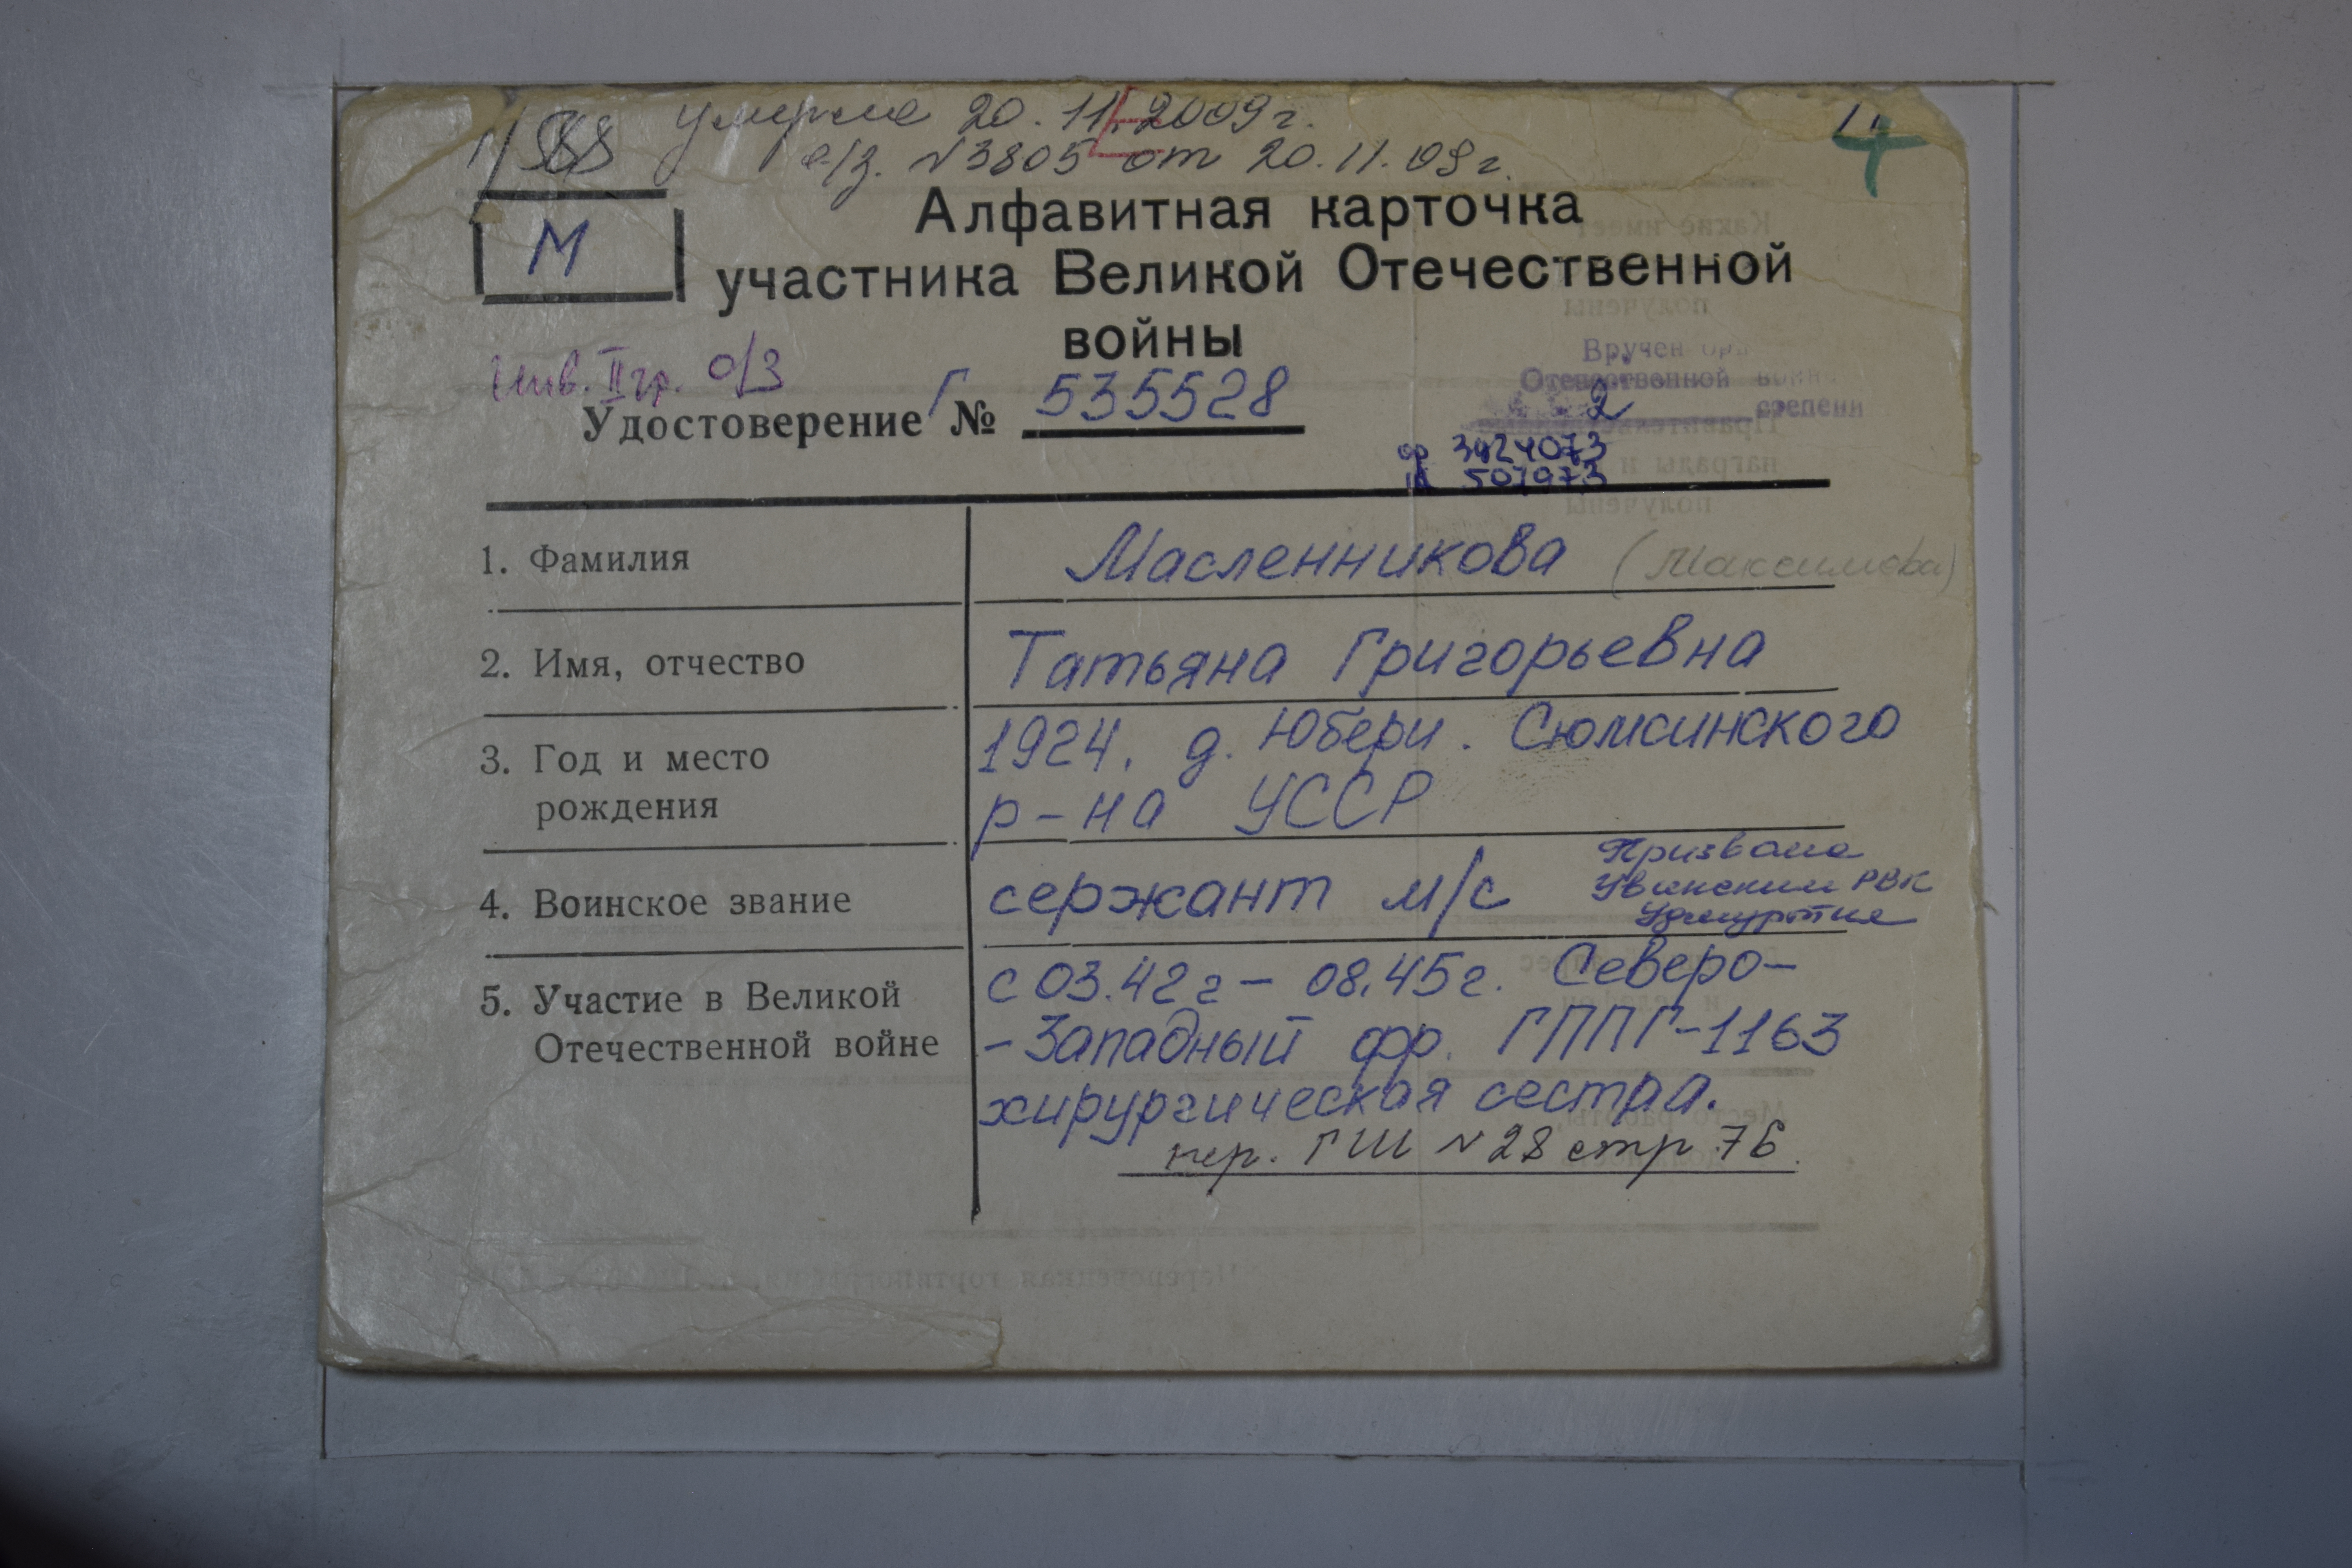 умерла 20.11.2009г.
а/з. N3805 от 20.11.09г.
М
Алфавитная карточка
участника Великой Отечественной
войны
Инв. II гр. о/з
Удостоверение Г № 535528
Вручен
Отечественной
2 степени
ор 3424073
501973
1. Фамилия Масленникова (Максимова)
2. Имя, отчество Татьяна Григорьевна
3. Год и место 1924, д. Юбери. Сюмсинского
рождения р-на УССР
4. Воинское звание сержант м/с Призвана
Увинским РВК
Удмуртия
5. Участие в Великой с 03.42г - 08.45г. Северо-
Отечественной войне -Западный фр. ГППГ-1163
хирургическая сестра.
пер. ГШ N28 стр 76.